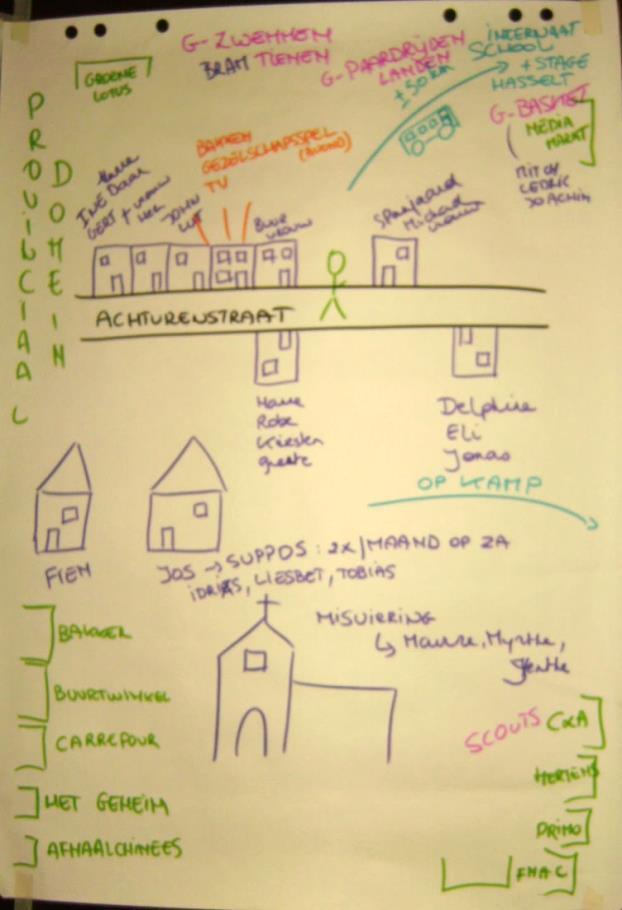 G-ZWEMMEN
BRAM TIENEN
G-PAARDRIJDEN
LANDEN
± 50 km
INTERNAAT
SCHOOL
+ STAGE
HASSELT
G-BASKET
MEDIA
MARKT
MITCH
CEDRIC
JOACHIM
GROENE
LOTUS
PROVINCIAAL
DOMEIN
BAKKEN
GEZELSCHAPSSPEL
(AVOND)
TV
INE Daan
GERT + VROUW
JOHN
LUT
BUUR
VROUW
Spanjaard
Michael
ACHTURENSTRAAT
Hanne
Robe
Kirsten
Greete
Delphine
Eli
Jonas
OP KAMP
FIEN
JOS → SUPPOS : 2X/MAAND OP ZA
IDRISS, LIESBET, TOBIAS
MISVIERING
↳ Maurse, Myrthe,
Jenthe
BAKKER
BUURTWINKEL
CARREFOUR
HET GEHEIM
AFHAALCHINEES
SCOUTS C&A
HERTENS
PRIMO
FNAC